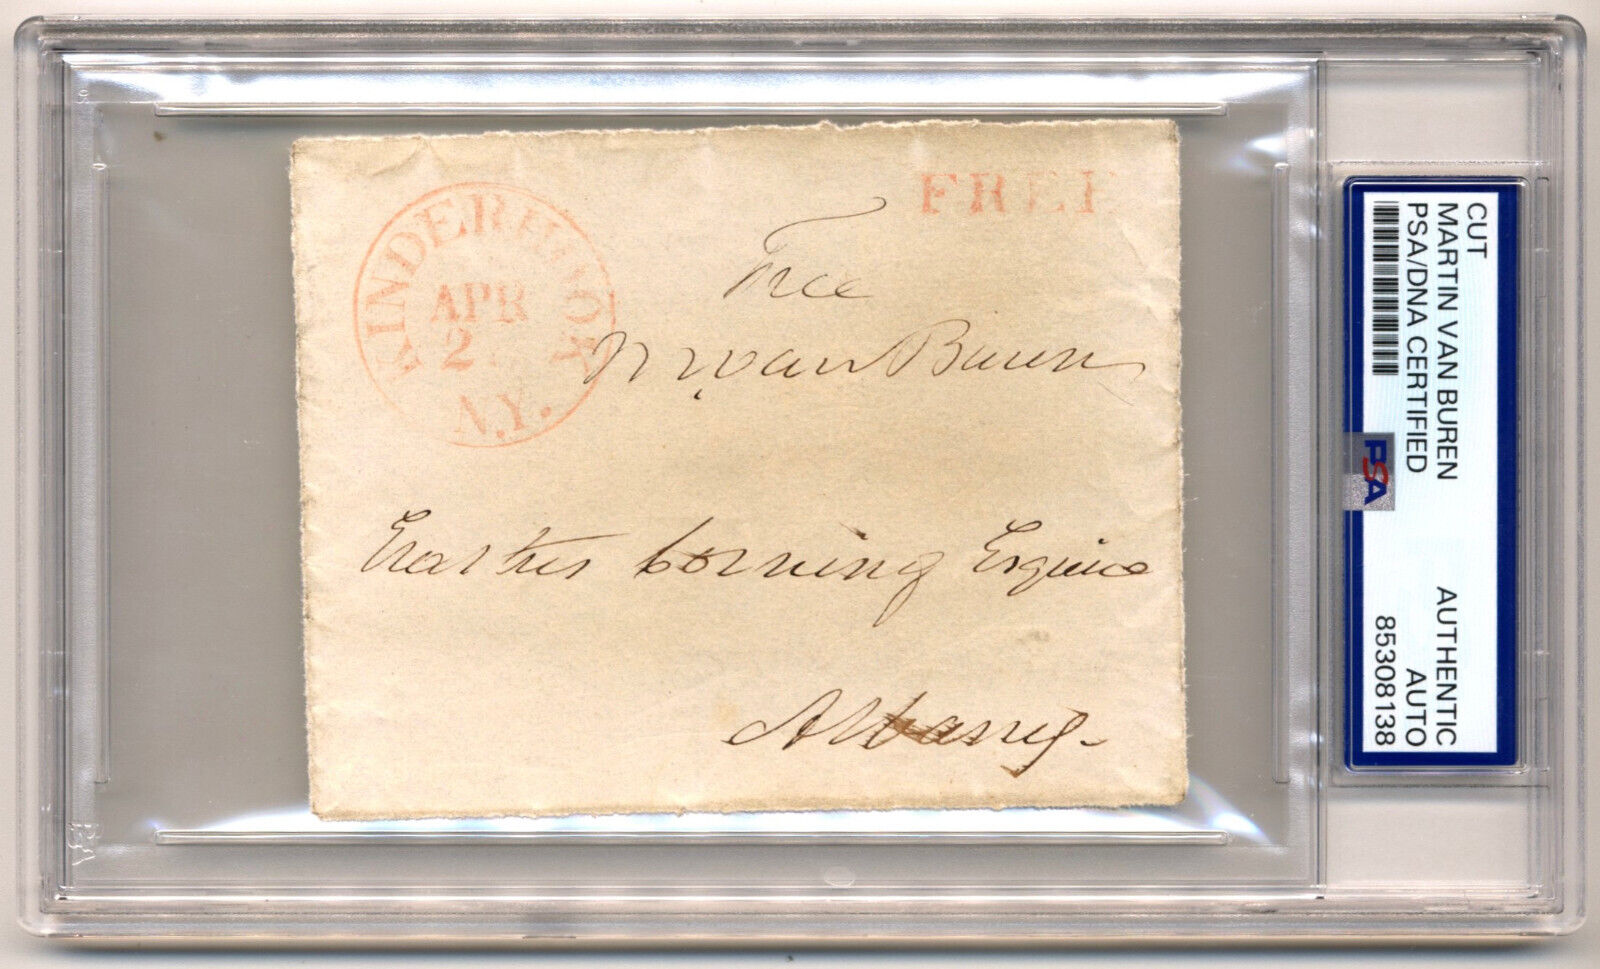 KINDERHOOK
APR
2
N.Y.
FREE
Free
M Van Buren
Erastus Corning Esquire
Albany.
CUT
MARTIN VAN BUREN
PSA/DNA CERTIFIED
AUTHENTIC
AUTO
85308138
PSA